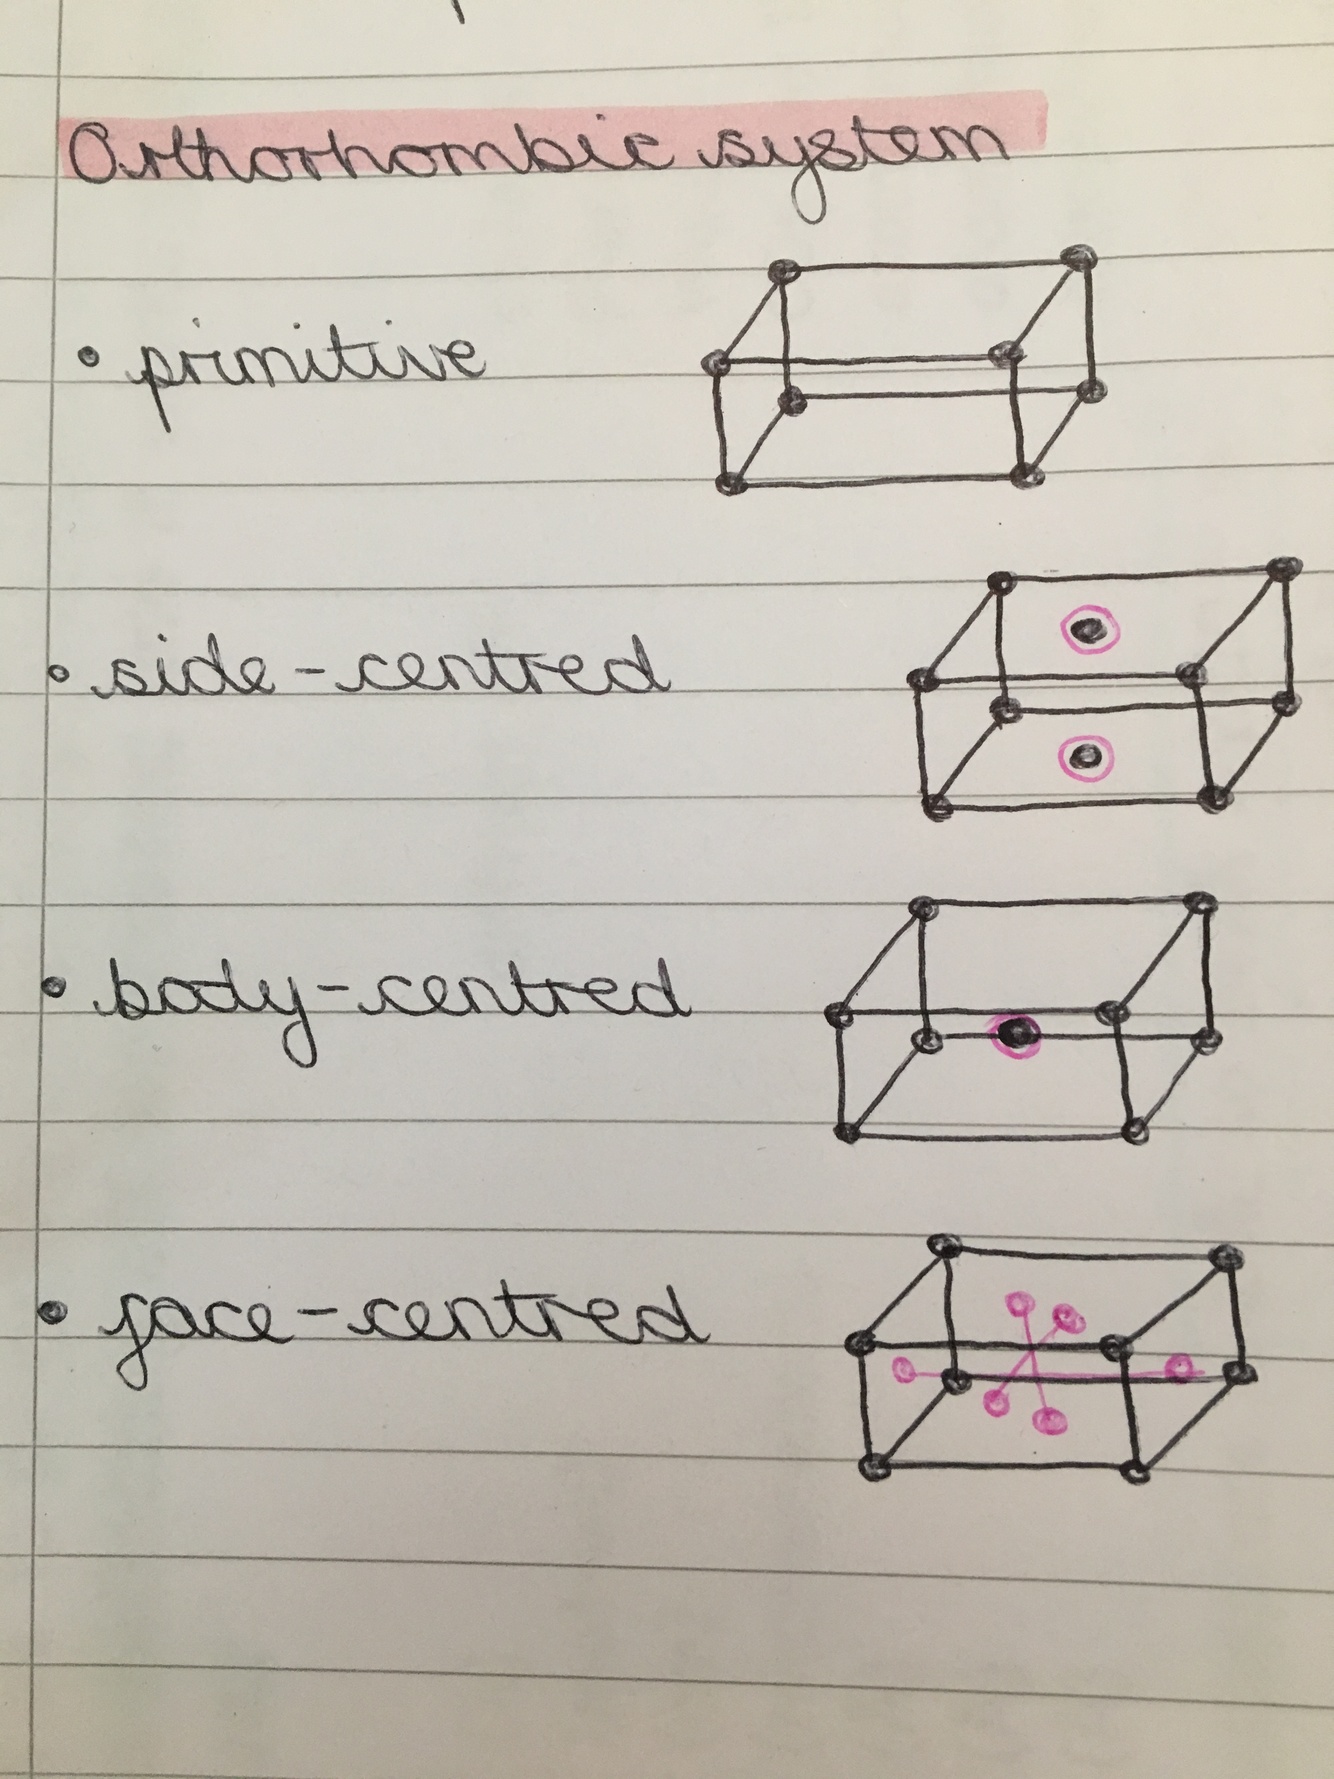 Orthorhombic system
• primitive
• side-centred
• body-centred
• face-centred